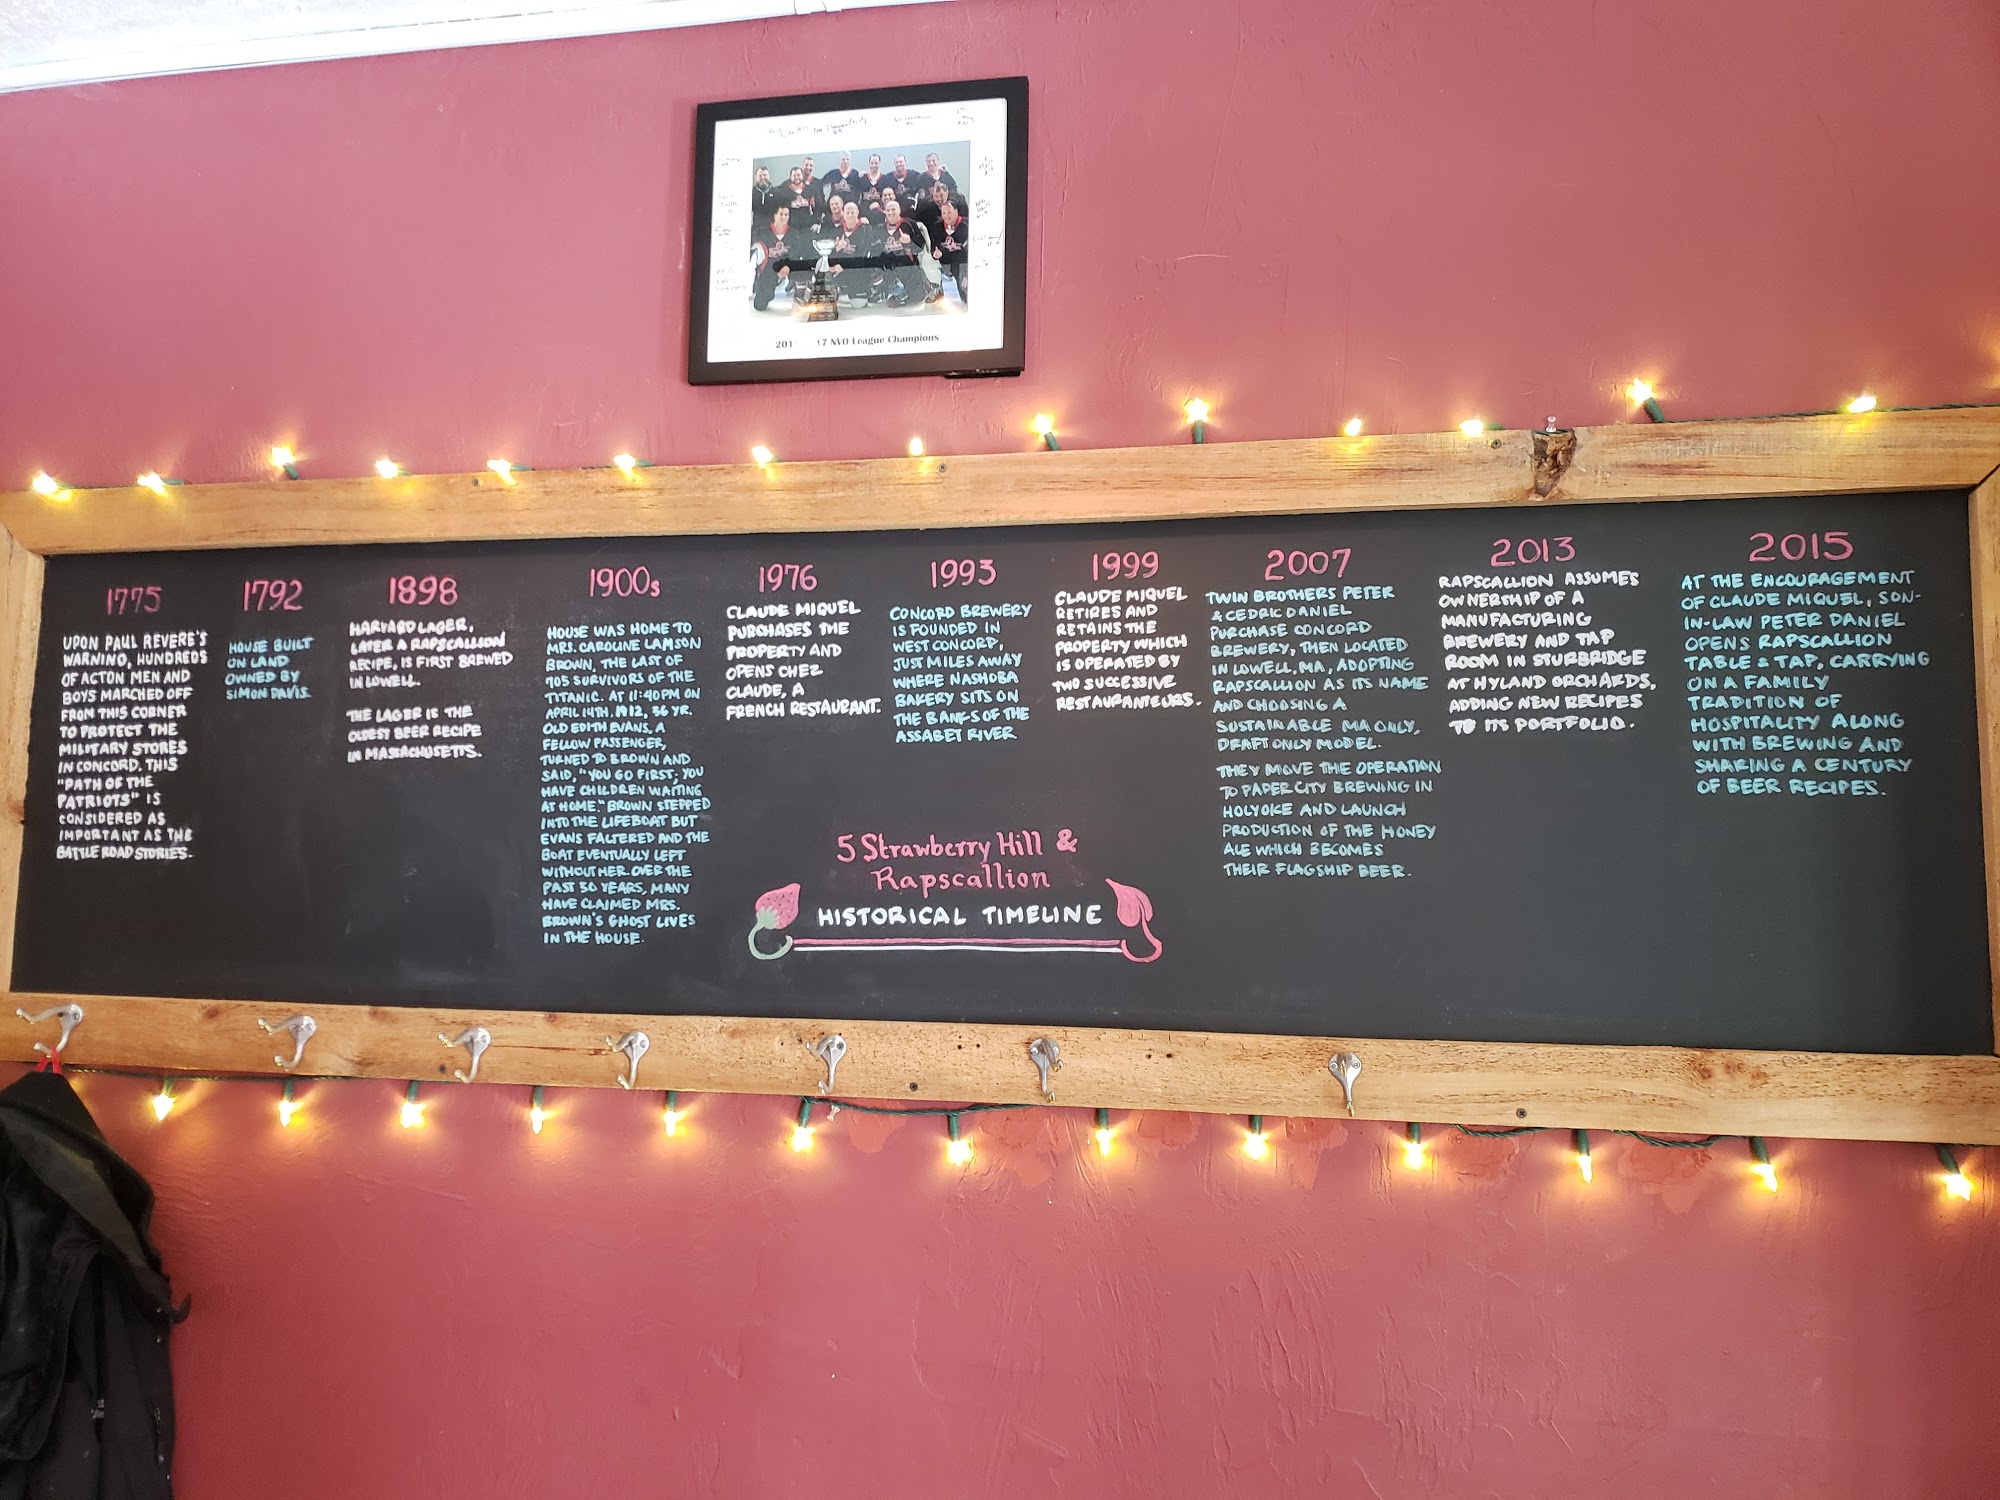 17 NVO League Champions
1775
UPON PAUL REVERE'S
WARNING, HUNDREDS
OF ACTON MEN AND
BOYS MARCHED OFF
FROM THIS CORNER
TO PROTECT THE
MILITARY STORES
IN CONCORD. THIS
"PATH OF THE
PATRIOTS" IS
CONSIDERED AS
IMPORTANT AS THE
BATTLE ROAD STORIES.
1792
HOUSE BUILT
ON LAND
OWNED BY
SIMON DAVIS.
1898
HARVARD LAGER,
LATER A RAPSCALLION
RECIPE, IS FIRST BREWED
IN LOWELL.
THE LAGER IS THE
OLDEST BEER RECIPE
IN MASSACHUSETTS.
1900s
HOUSE WAS HOME TO
MRS. CAROLINE LAMSON
BROWN, THE LAST OF
705 SURVIVORS OF THE
TITANIC. AT 11:40PM ON
APRIL 14TH, 1912, 36 YR.
OLD EDITH EVANS, A
FELLOW PASSENGER,
TURNED TO BROWN AND
SAID, "YOU GO FIRST; YOU
HAVE CHILDREN WAITING
AT HOME." BROWN STEPPED
INTO THE LIFEBOAT BUT
EVANS FALTERED AND THE
BOAT EVENTUALLY LEFT
WITHOUT HER. OVER THE
PAST 30 YEARS, MANY
HAVE CLAIMED MRS.
BROWN'S GHOST LIVES
IN THE HOUSE.
1976
CLAUDE MIQUEL
PURCHASES THE
PROPERTY AND
OPENS CHEZ
CLAUDE, A
FRENCH RESTAURANT.
1993
CONCORD BREWERY
IS FOUNDED IN
WEST CONCORD,
JUST MILES AWAY
WHERE NASHOBA
BAKERY SITS ON
THE BANKS OF THE
ASSABET RIVER
1999
CLAUDE MIQUEL
RETIRES AND
RETAINS THE
PROPERTY WHICH
IS OPERATED BY
TWO SUCCESSIVE
RESTAURANTEURS.
2007
TWIN BROTHERS PETER
& CEDRIC DANIEL
PURCHASE CONCORD
BREWERY, THEN LOCATED
IN LOWELL, MA, ADOPTING
RAPSCALLION AS ITS NAME
AND CHOOSING A
SUSTAINABLE MA ONLY,
DRAFT ONLY MODEL.
THEY MOVE THE OPERATION
TO PAPER CITY BREWING IN
HOLYOKE AND LAUNCH
PRODUCTION OF THE HONEY
ALE WHICH BECOMES
THEIR FLAGSHIP BEER.
2013
RAPSCALLION ASSUMES
OWNERSHIP OF A
MANUFACTURING
BREWERY AND TAP
ROOM IN STURBRIDGE
AT HYLAND ORCHARDS,
ADDING NEW RECIPES
TO ITS PORTFOLIO.
2015
AT THE ENCOURAGEMENT
OF CLAUDE MIQUEL, SON-
IN-LAW PETER DANIEL
OPENS RAPSCALLION
TABLE & TAP, CARRYING
ON A FAMILY
TRADITION OF
HOSPITALITY ALONG
WITH BREWING AND
SHARING A CENTURY
OF BEER RECIPES.
5 Strawberry Hill &
Rapscallion
HISTORICAL TIMELINE